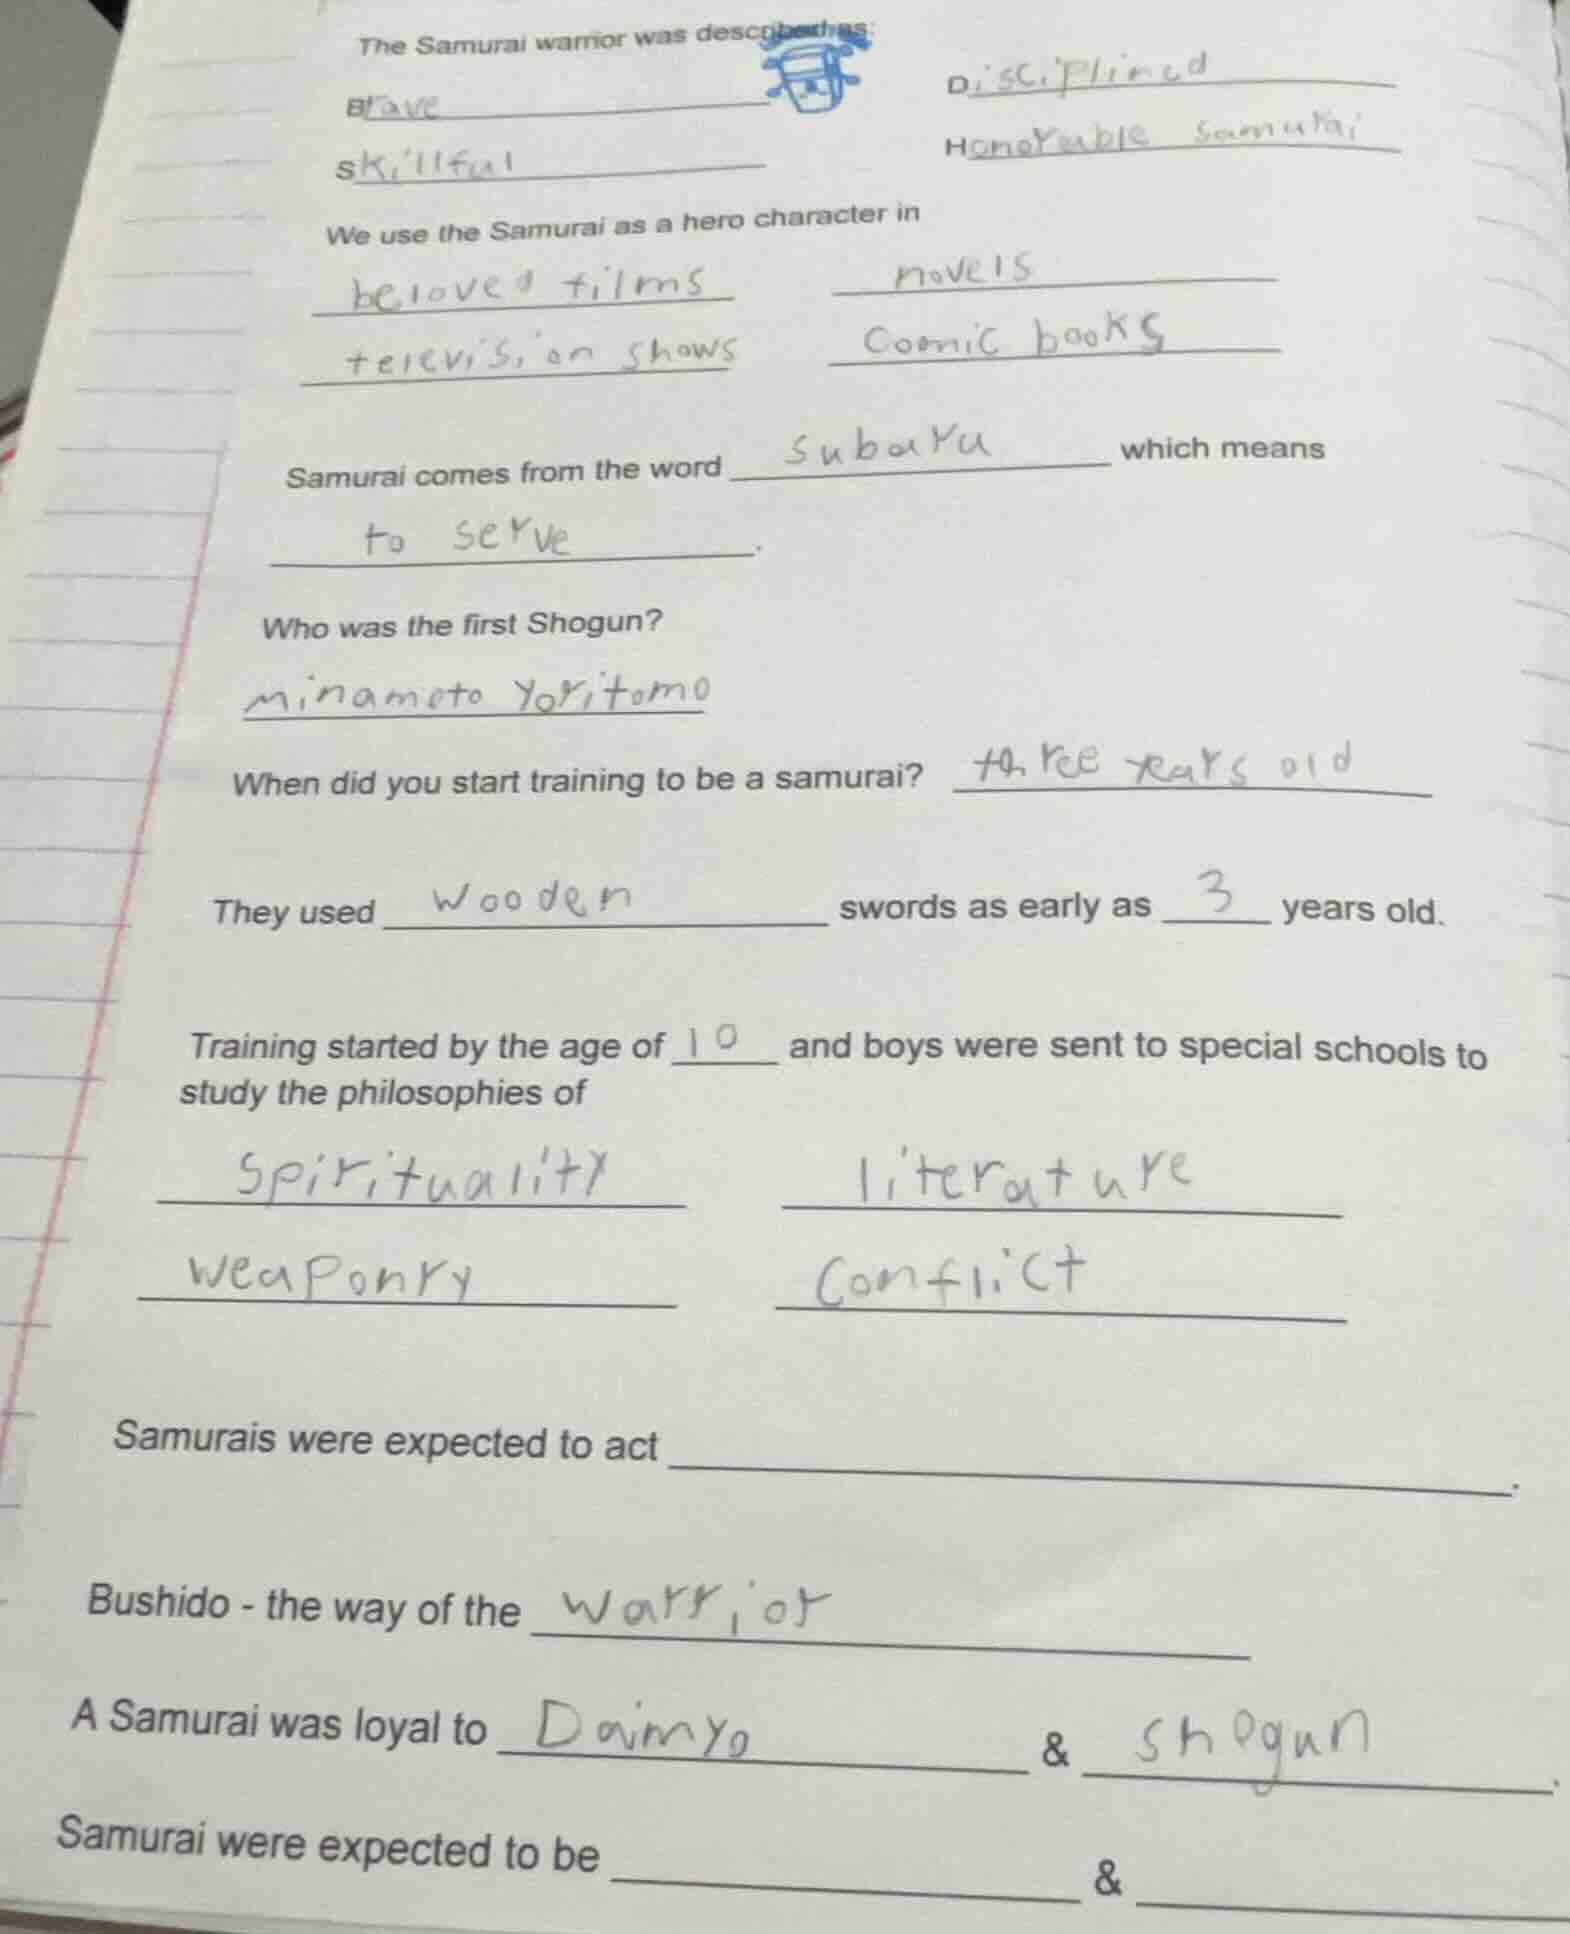 The Samurai warrior was described as:
Brave Disciplined
Skillful Honorable samurai
We use the Samurai as a hero character in
beloved films novels
television shows Comic books
Samurai comes from the word subaru which means
to serve.
Who was the first Shogun?
minamoto Yoritomo
When did you start training to be a samurai? three years old
They used wooden swords as early as 3 years old.
Training started by the age of 10 and boys were sent to special schools to
study the philosophies of
Spirituality literature
weaponry Conflict
Samurais were expected to act .
Bushido - the way of the warrior
A Samurai was loyal to Daimyo & shogun.
Samurai were expected to be &